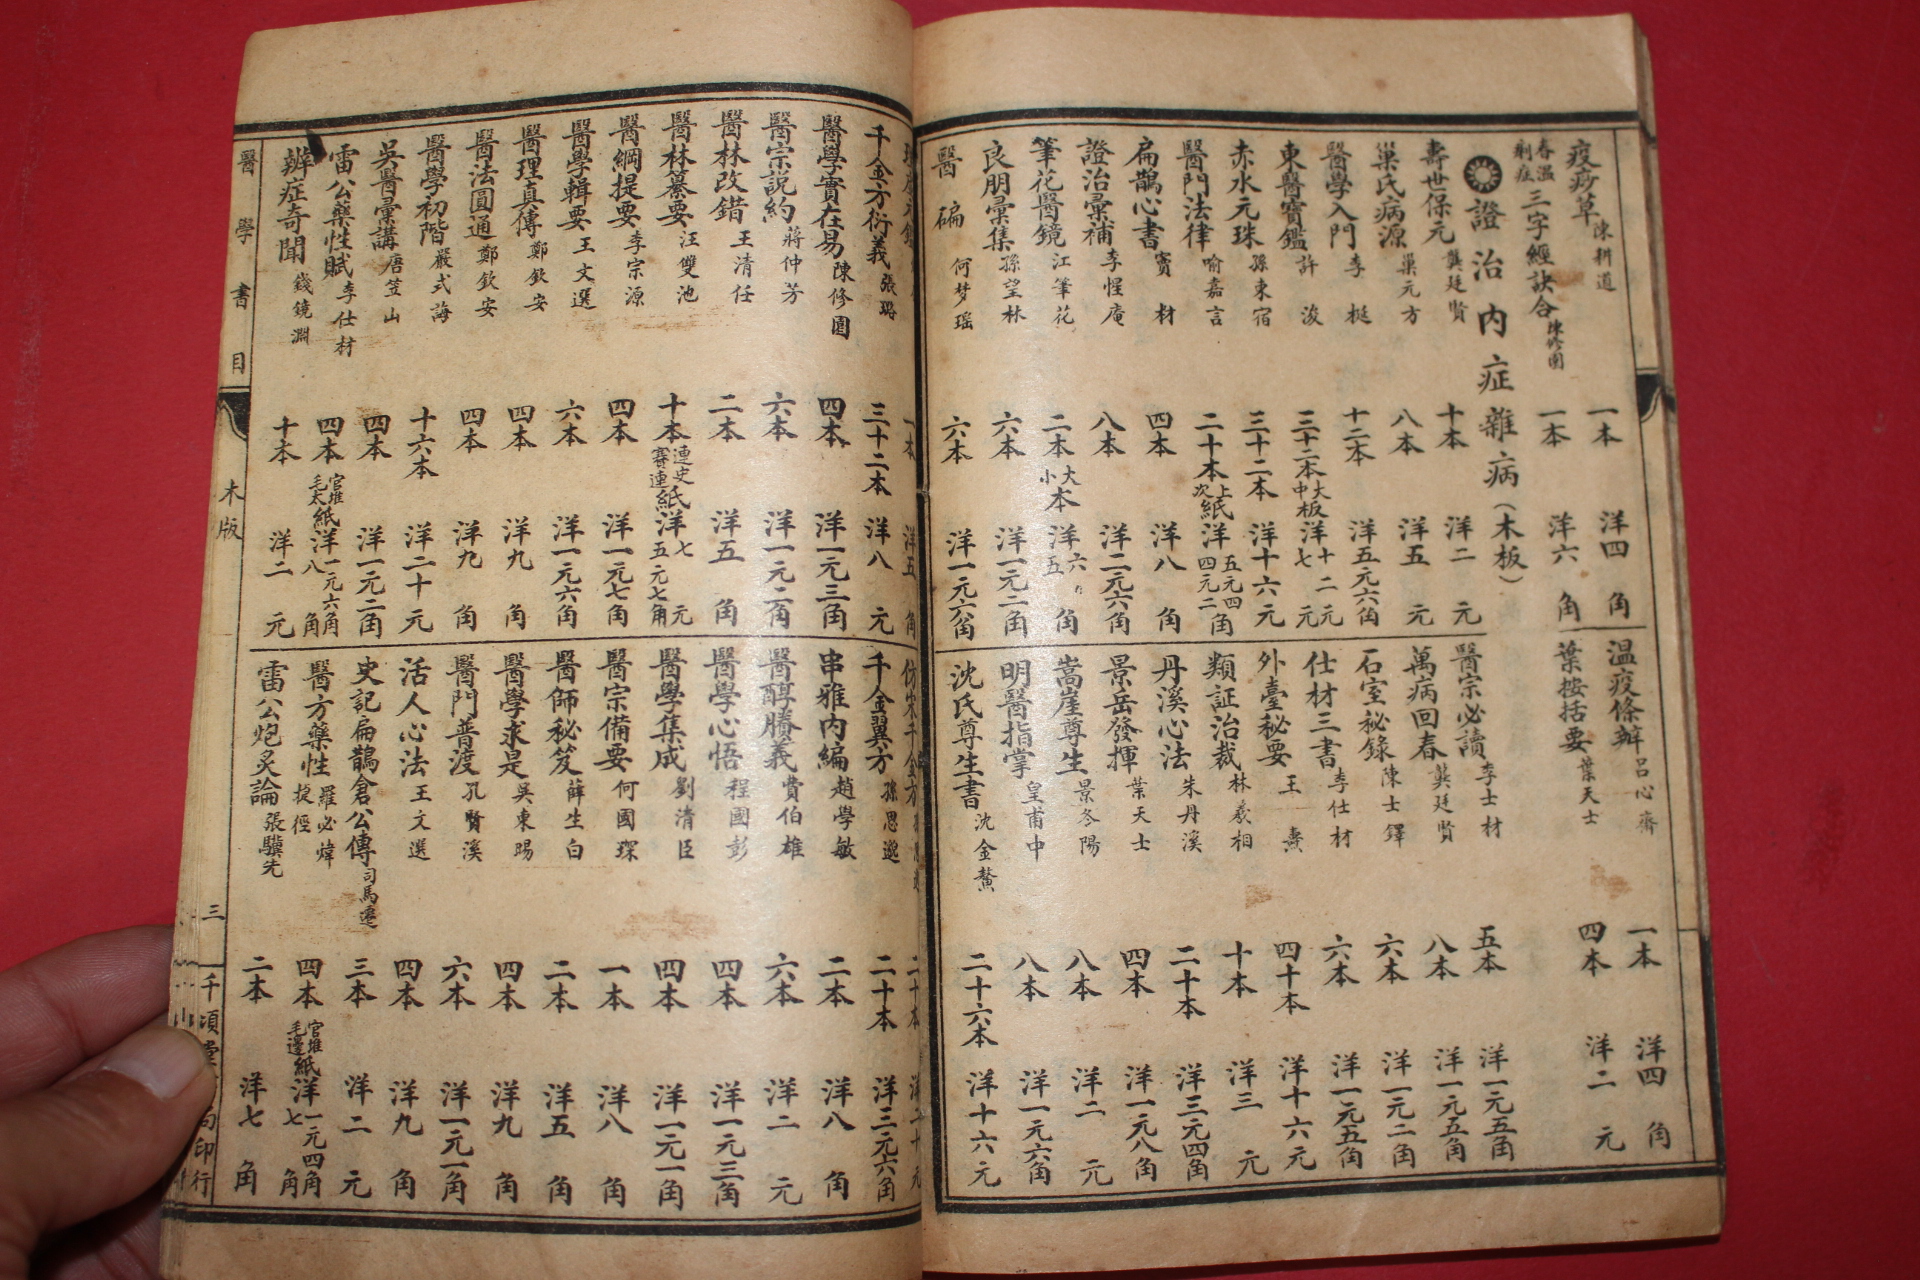 疫痧草 陳耕道 一本 洋四角
春溫剩症三字經訣合 陳修園 一本 洋六角
溫疫條辨 呂心齋 一本 洋四角
葉按括要 葉天士 四本 洋二元
證治內症雜病（木板）
壽世保元 龔廷賢 十本 洋二元
巢氏病源 巢元方 八本 洋五元
醫學入門 李梃 十二本 洋五元六角
東醫寶鑑 許浚 三十二本 大中板 洋十二元七元
赤水元珠 孫東宿 三十二本 洋十六元
醫門法律 喻嘉言 二十本 上次紙 洋五元四四元二角
扁鵲心書 竇材 四本 洋八角
證治彙補 李惺庵 八本 洋二元六角
筆花醫鏡 江筆花 二本 大小本 洋六五角
良朋彙集 孫望林 六本 洋一元二角
醫碥 何梦瑶 六本 洋一元六角
醫宗必讀 李士材 五本 洋一元五角
萬病回春 龔廷賢 八本 洋一元五角
石室秘錄 陳士鐸 六本 洋一元二角
仕材三書 李仕材 六本 洋一元五角
外臺秘要 王燾 四十本 洋十六元
類証治裁 林羲相 十本 洋三元
丹溪心法 朱丹溪 二十本 洋三元四角
景岳發揮 葉天士 四本 洋一元八角
嵩崖尊生 景冬陽 八本 洋二元
明醫指掌 皇甫中 八本 洋一元六角
沈氏尊生書 沈金鰲 二十六本 洋十六元
一本 洋五角
千金方衍義 張璐 三十二本 洋八元
醫學實在易 陳修園 四本 洋一元三角
醫宗說約 蔣仲芳 六本 洋一元二角
醫林改錯 王清任 二本 洋五角
醫林纂要 汪雙池 十本 連史賽連紙 洋七元五元七角
醫綱提要 李宗源 四本 洋一元七角
醫學輯要 王文選 六本 洋一元六角
醫理真傳 鄭欽安 四本 洋九角
醫法圓通 鄭欽安 四本 洋九角
醫學初階 嚴式誨 十六本 洋二十元
吳醫彙講 唐笠山 四本 洋一元二角
雷公藥性賦 李仕材 四本 官堆毛太紙 洋一元六角八角
辨症奇聞 錢鏡淵 十本 洋二元
仿宋千金方 孫思邈 二十本 洋二十元
千金翼方 孫思邈 二十本 洋三元六角
串雅內編 趙學敏 二本 洋八角
醫醇賸義 費伯雄 六本 洋二元
醫學心悟 程國彭 四本 洋一元三角
醫學集成 劉清臣 四本 洋一元一角
醫宗備要 何國琛 一本 洋八角
醫師秘笈 薛生白 二本 洋五角
醫學求是 吳東暘 四本 洋九角
醫門普渡 孔賢溪 六本 洋一元一角
活人心法 王文選 四本 洋九角
史記扁鵲倉公傳 司馬遷 三本 洋二元
醫方藥性 羅必煒 捷徑 四本 官堆毛邊紙 洋一元四角七角
雷公炮炙論 張驥先 二本 洋七角
醫學書目 木版 三 千頃堂 局印行